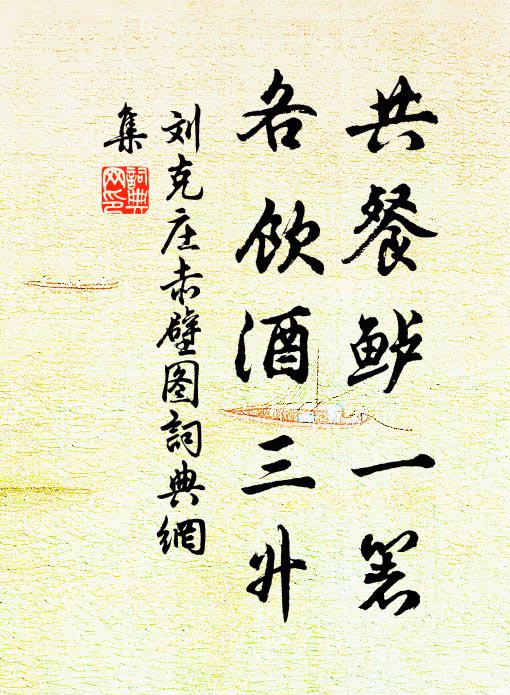 共餐鲈一箸
各饮酒三升
刘克庄赤壁图詞典網
集
詞典网印